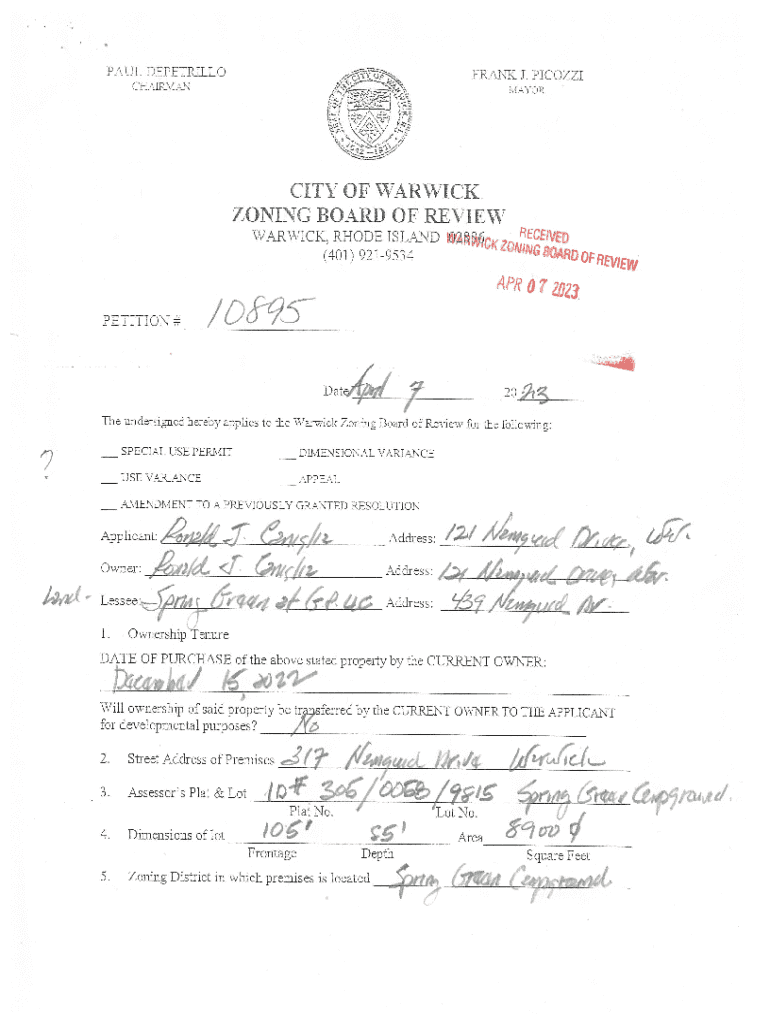 PAUL DEPETRILLO
CHAIRMAN
FRANK J. PICOZZI
MAYOR
CITY OF WARWICK
ZONING BOARD OF REVIEW
WARWICK, RHODE ISLAND 02886
(401) 921-9534
RECEIVED
WARWICK ZONING BOARD OF REVIEW
APR 07 2023
PETITION # 10895
Date April 7 2023
The undersigned hereby applies to the Warwick Zoning Board of Review for the following:
? __ SPECIAL USE PERMIT __ DIMENSIONAL VARIANCE
__ USE VARIANCE __ APPEAL
__ AMENDMENT TO A PREVIOUSLY GRANTED RESOLUTION
Applicant: Ronald J. Caniglia Address: 121 Namquid Drive, War.
Owner: Ronald J. Caniglia Address: 121 Namquid Drive, War.
Land - Lessee: Spring Green at G.P. LLC Address: 439 Namquid Dr.
1. Ownership Tenure
DATE OF PURCHASE of the above stated property by the CURRENT OWNER:
December 15, 2022
Will ownership of said property be transferred by the CURRENT OWNER TO THE APPLICANT
for developmental purposes? No
2. Street Address of Premises 317 Namquid Drive Warwick
3. Assessor's Plat & Lot ID# 305/0053/9815 Spring Green Campground.
Plat No. Lot No.
4. Dimensions of lot 105' 85' Area 8900
Frontage Depth Square Feet
5. Zoning District in which premises is located Spring Green Campground